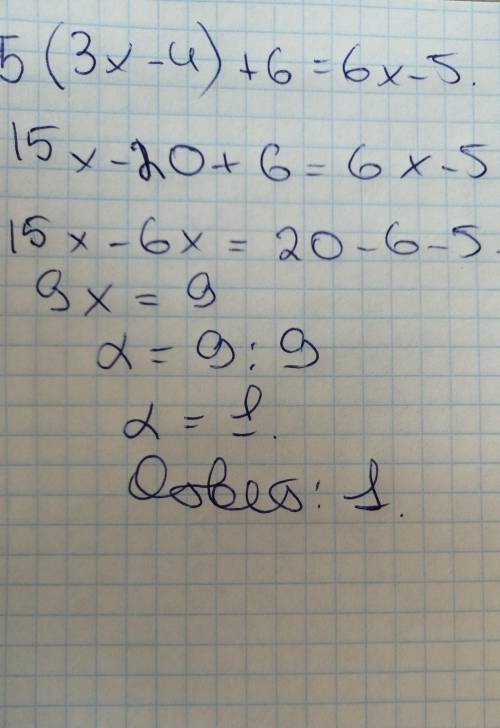 5 (3x-4)+6=6x-5.
15x-20+6=6x-5
15x-6x=20-6-5.
9x=9
x=9:9
x=1.
Ответ: 1.